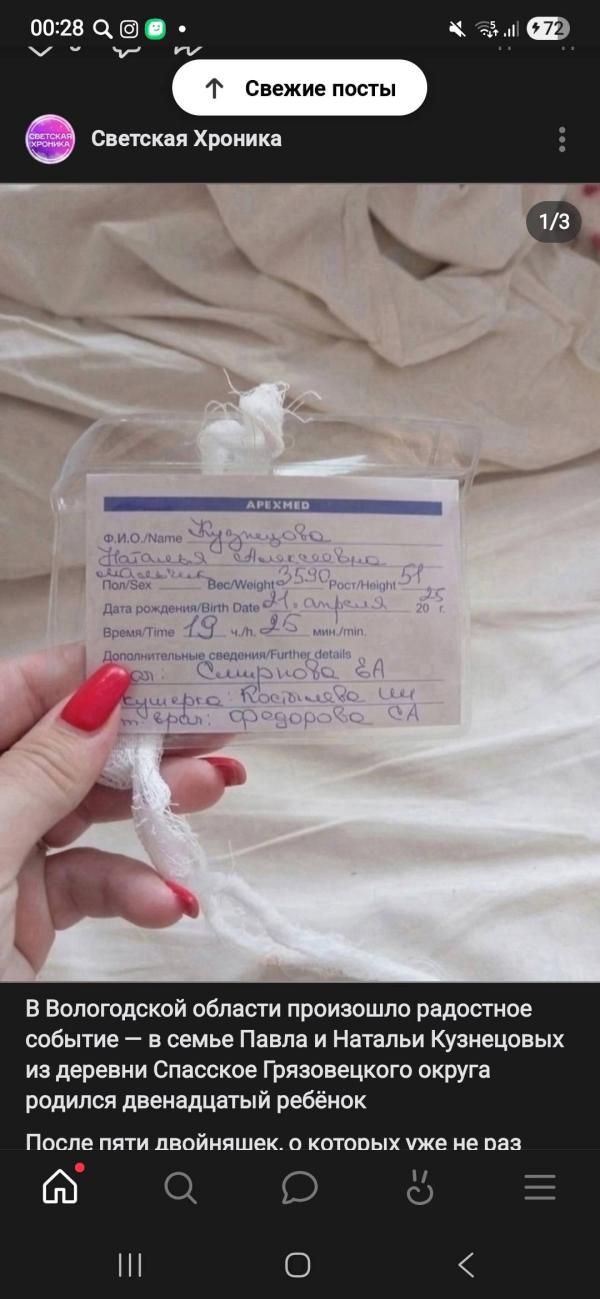 00:28
72
Свежие посты
СВЕТСКАЯ ХРОНИКА
Светская Хроника
1/3
APEXMED
Ф.И.О./Name Кузнецова
Наталья Алексеевна
мальчик
Пол/Sex Вес/Weight 3590 Рост/Height 51
Дата рождения/Birth Date 21. апреля 2025 г.
Время/Time 19 ч./h. 25 мин./min.
Дополнительные сведения/Further details
Смирнова ЕА
кушерка: Костылева
врач: Федорова СА
В Вологодской области произошло радостное
событие — в семье Павла и Натальи Кузнецовых
из деревни Спасское Грязовецкого округа
родился двенадцатый ребёнок
После пяти двойняшек, о которых уже не раз